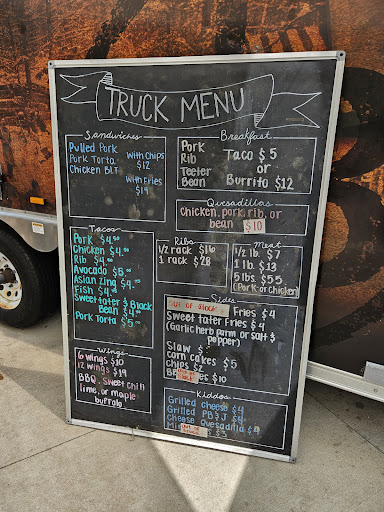 TRUCK MENU
Sandwiches
Pulled Pork
Pork Torta
Chicken BLT
with Chips
$12
with Fries
$14
Breakfast
Pork
Rib
Teeter
Bean
Taco $5
or
Burrito $12
Quesadillas
Chicken, pork, rib, or
bean $10
Tacos
Pork $4.50
Chicken $4.00
Rib $4.50
Avocado $5.00
Asian Zing $4
Fish $4
Sweet tater & Black
Bean $4
Pork Torta $5
Ribs
1/2 rack $16
1 rack $28
Meat
1/2 lb. $7
1 lb. $13
5 lbs $55
(Pork or Chicken)
Sides
Out of Stock Fries $4
Sweet tater Fries $4
(Garlic herb parm or salt &
pepper)
Slaw $
Corn cakes $5
Chips $2
es $10
Wings
6 wings $10
12 wings $19
BBQ, Sweet Chili
lime, or maple
buffalo
Kiddos
Grilled Cheese $4
Grilled PB&J $4
Cheese Quesadilla $4
$3